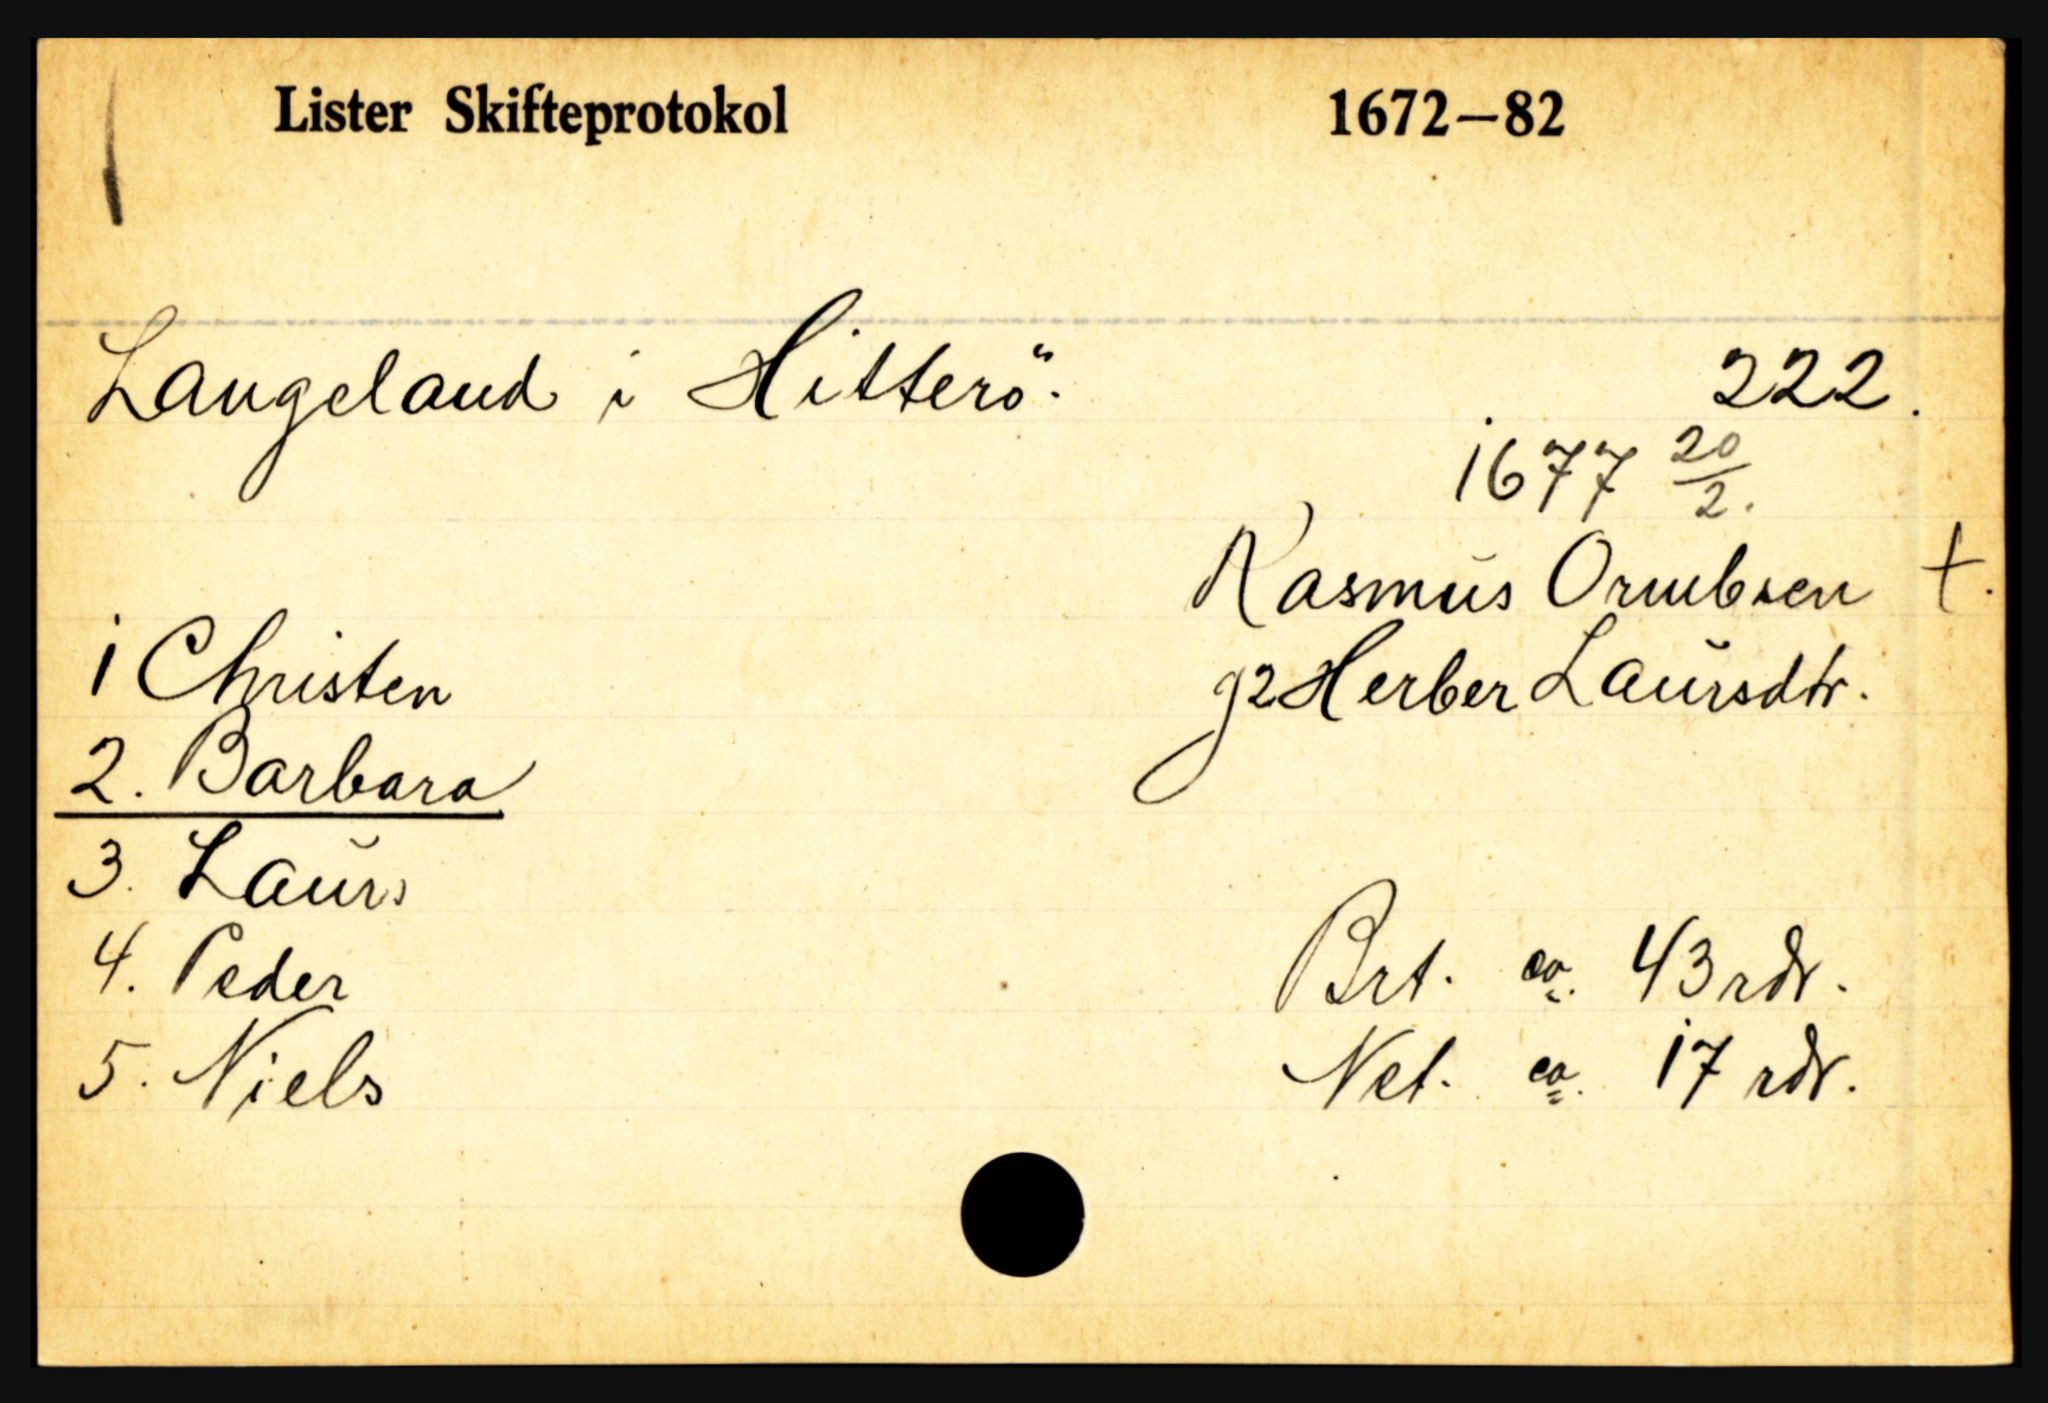 Lister Skifteprotokol 1672—82
Langeland i Hitterö. 222.
1677 20/2.
Rasmus Ormbsen †.
1 Christen
g2 Herber Laursdtr.
2. Barbara
3. Laurs
4. Peder
Brt. ca. 43 rdr.
5. Niels
Net. ca. 17 rdr.